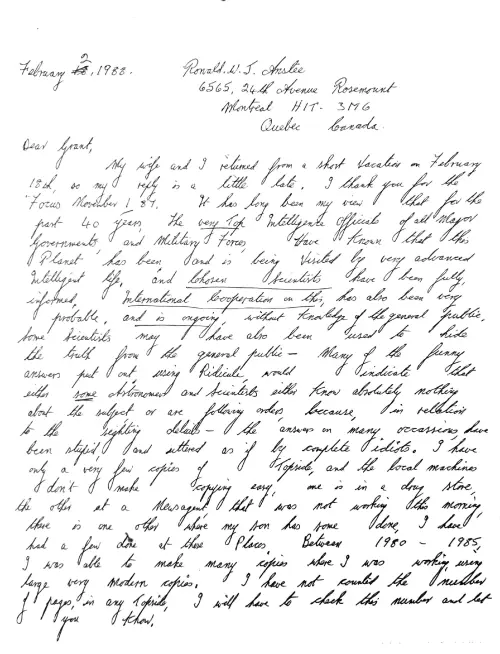 February 28, 1988.
Ronald. W. J. Anstee
6565, 24th Avenue Rosemount
Montreal H1T - 3M6
Quebec Canada.
Dear Grant,
My wife and I returned from a short Vacation on February
18th, so my reply is a little late. I thank you for the
Focus November 1 87. It has long been my view that for the
past 40 years, the very Top Intelligence Officials of all Major
Governments, and Military Forces, have known that this
Planet has been and is being Visited by very advanced
Intelligent life, and Chosen Scientists have been fully,
informed, International Cooperation on this, has also been very
probable, and is ongoing, without knowledge of the general public,
Some Scientists may have also been used to hide
the truth from the general public — Many of the funny
answers put out using Ridicule would indicate that
either some Astronomers and Scientists either know absolutely nothing
about the subject or are following orders, because, in relation
to the sighting details — the answers on many occassions, have
been stupid, and uttered as if by complete idiots. I have
only a very few copies of Topside, and the local machines
don't make copying easy, one is in a drug store,
the other at a Newsagent, that was not working this morning,
there is one other where my son has some done, I have
had a few done at these Places. Between 1980 - 1985,
I was able to make many copies where I was working, using
large very modern copies. I have not counted the number
of pages, in any Topside, I will have to check this number and let
you know,